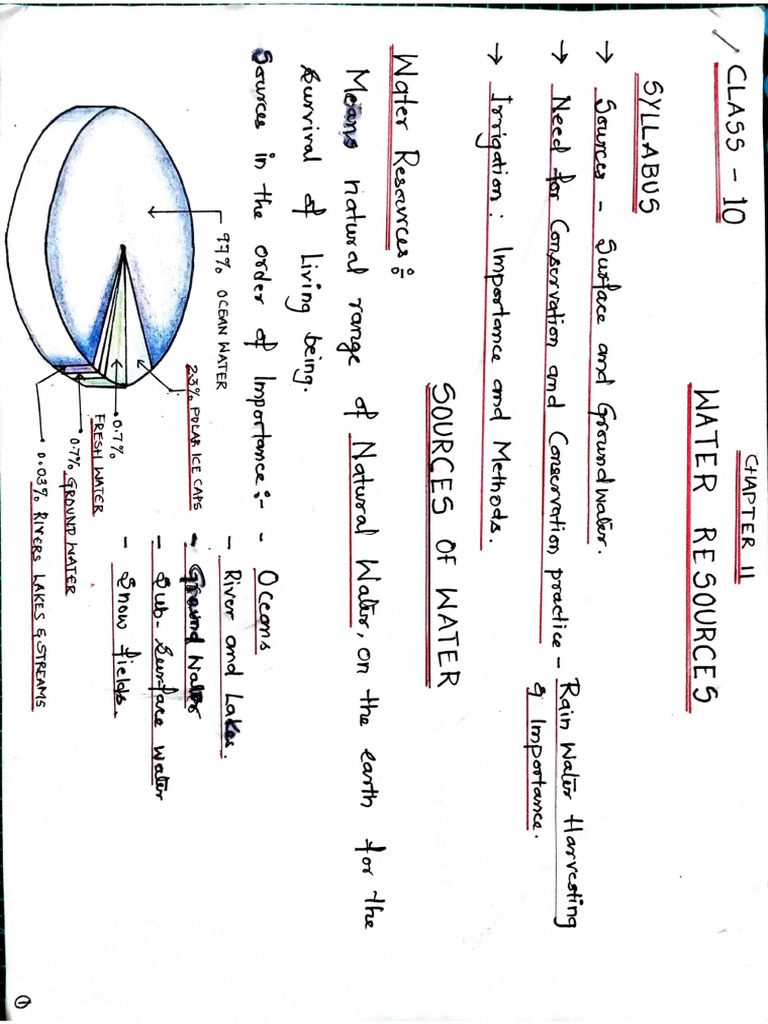 CLASS - 10
CHAPTER 11
WATER RESOURCES
SYLLABUS
→ Sources - Surface and Groundwater.
→ Need for Conservation and Conservation practice - Rain Water Harvesting
& Importance.
→ Irrigation: Importance and Methods.
SOURCES OF WATER
Water Resources:-
Means natural range of Natural Water, on the earth for the
Survival of Living being.
Sources in the order of Importance:- - Oceans
- River and Lakes.
- Ground Water
- Sub-Surface Water
- Snow fields.
97% OCEAN WATER
2.3% POLAR ICE CAPS
0.7%
FRESH WATER
0.7% GROUND WATER
0.03% RIVERS LAKES & STREAMS
1